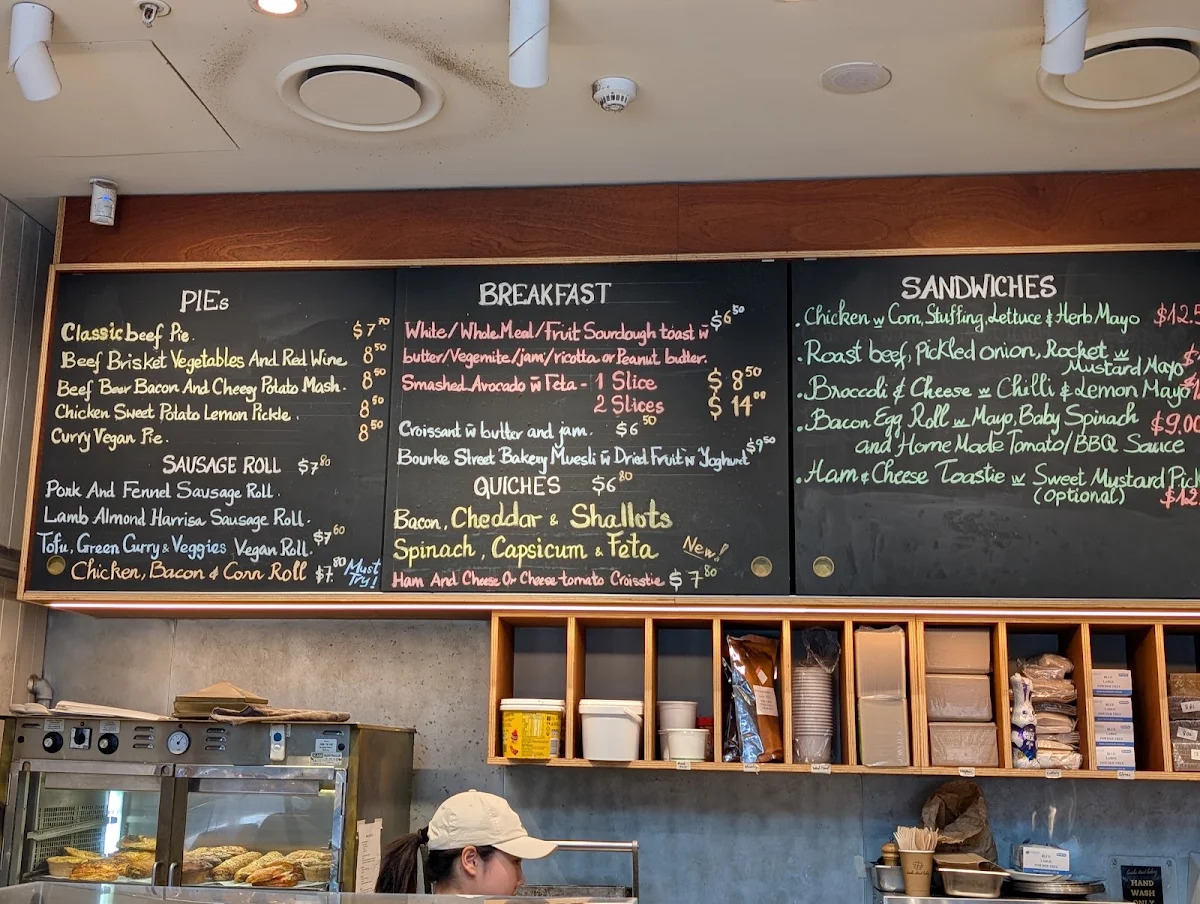 PIEs
Classic beef Pie. $7⁷⁰
Beef Brisket Vegetables And Red Wine 8⁵⁰
Beef Beer Bacon And Cheesy Potato Mash. 8⁵⁰
Chicken Sweet Potato Lemon Pickle. 8⁵⁰
Curry Vegan Pie. 8⁵⁰
SAUSAGE ROLL $7⁸⁰
Pork And Fennel Sausage Roll.
Lamb Almond Harrisa Sausage Roll.
Tofu, Green Curry & Veggies Vegan Roll. $7⁶⁰
Chicken, Bacon & Corn Roll $7.⁸⁰ Must Try!
BREAKFAST
White/WholeMeal/Fruit Sourdough toast w̄ $6⁵⁰
butter/Vegemite/jam/ricotta or Peanut butter.
Smashed Avocado w̄ Feta - 1 Slice $8⁵⁰
2 Slices $14⁰⁰
Croissant w̄ butter and jam. $6⁵⁰
Bourke Street Bakery Muesli w̄ Dried Fruit w Yoghurt $9⁵⁰
QUICHES $6⁸⁰
Bacon, Cheddar & Shallots
Spinach, Capsicum & Feta New!
Ham And Cheese Or Cheese tomato Croisstie $7⁸⁰
SANDWICHES
. Chicken w Corn, Stuffing, Lettuce & Herb Mayo $12.5
. Roast beef, pickled onion, Rocket w $
Mustard Mayo
. Broccoli & Cheese w Chilli & Lemon Mayo
. Bacon Egg Roll w Mayo, Baby Spinach $9,00
and Home Made Tomato/BBQ Sauce
. Ham & Cheese Toastie w Sweet Mustard Pick
(optional) $12.
HAND
WASH
ONLY